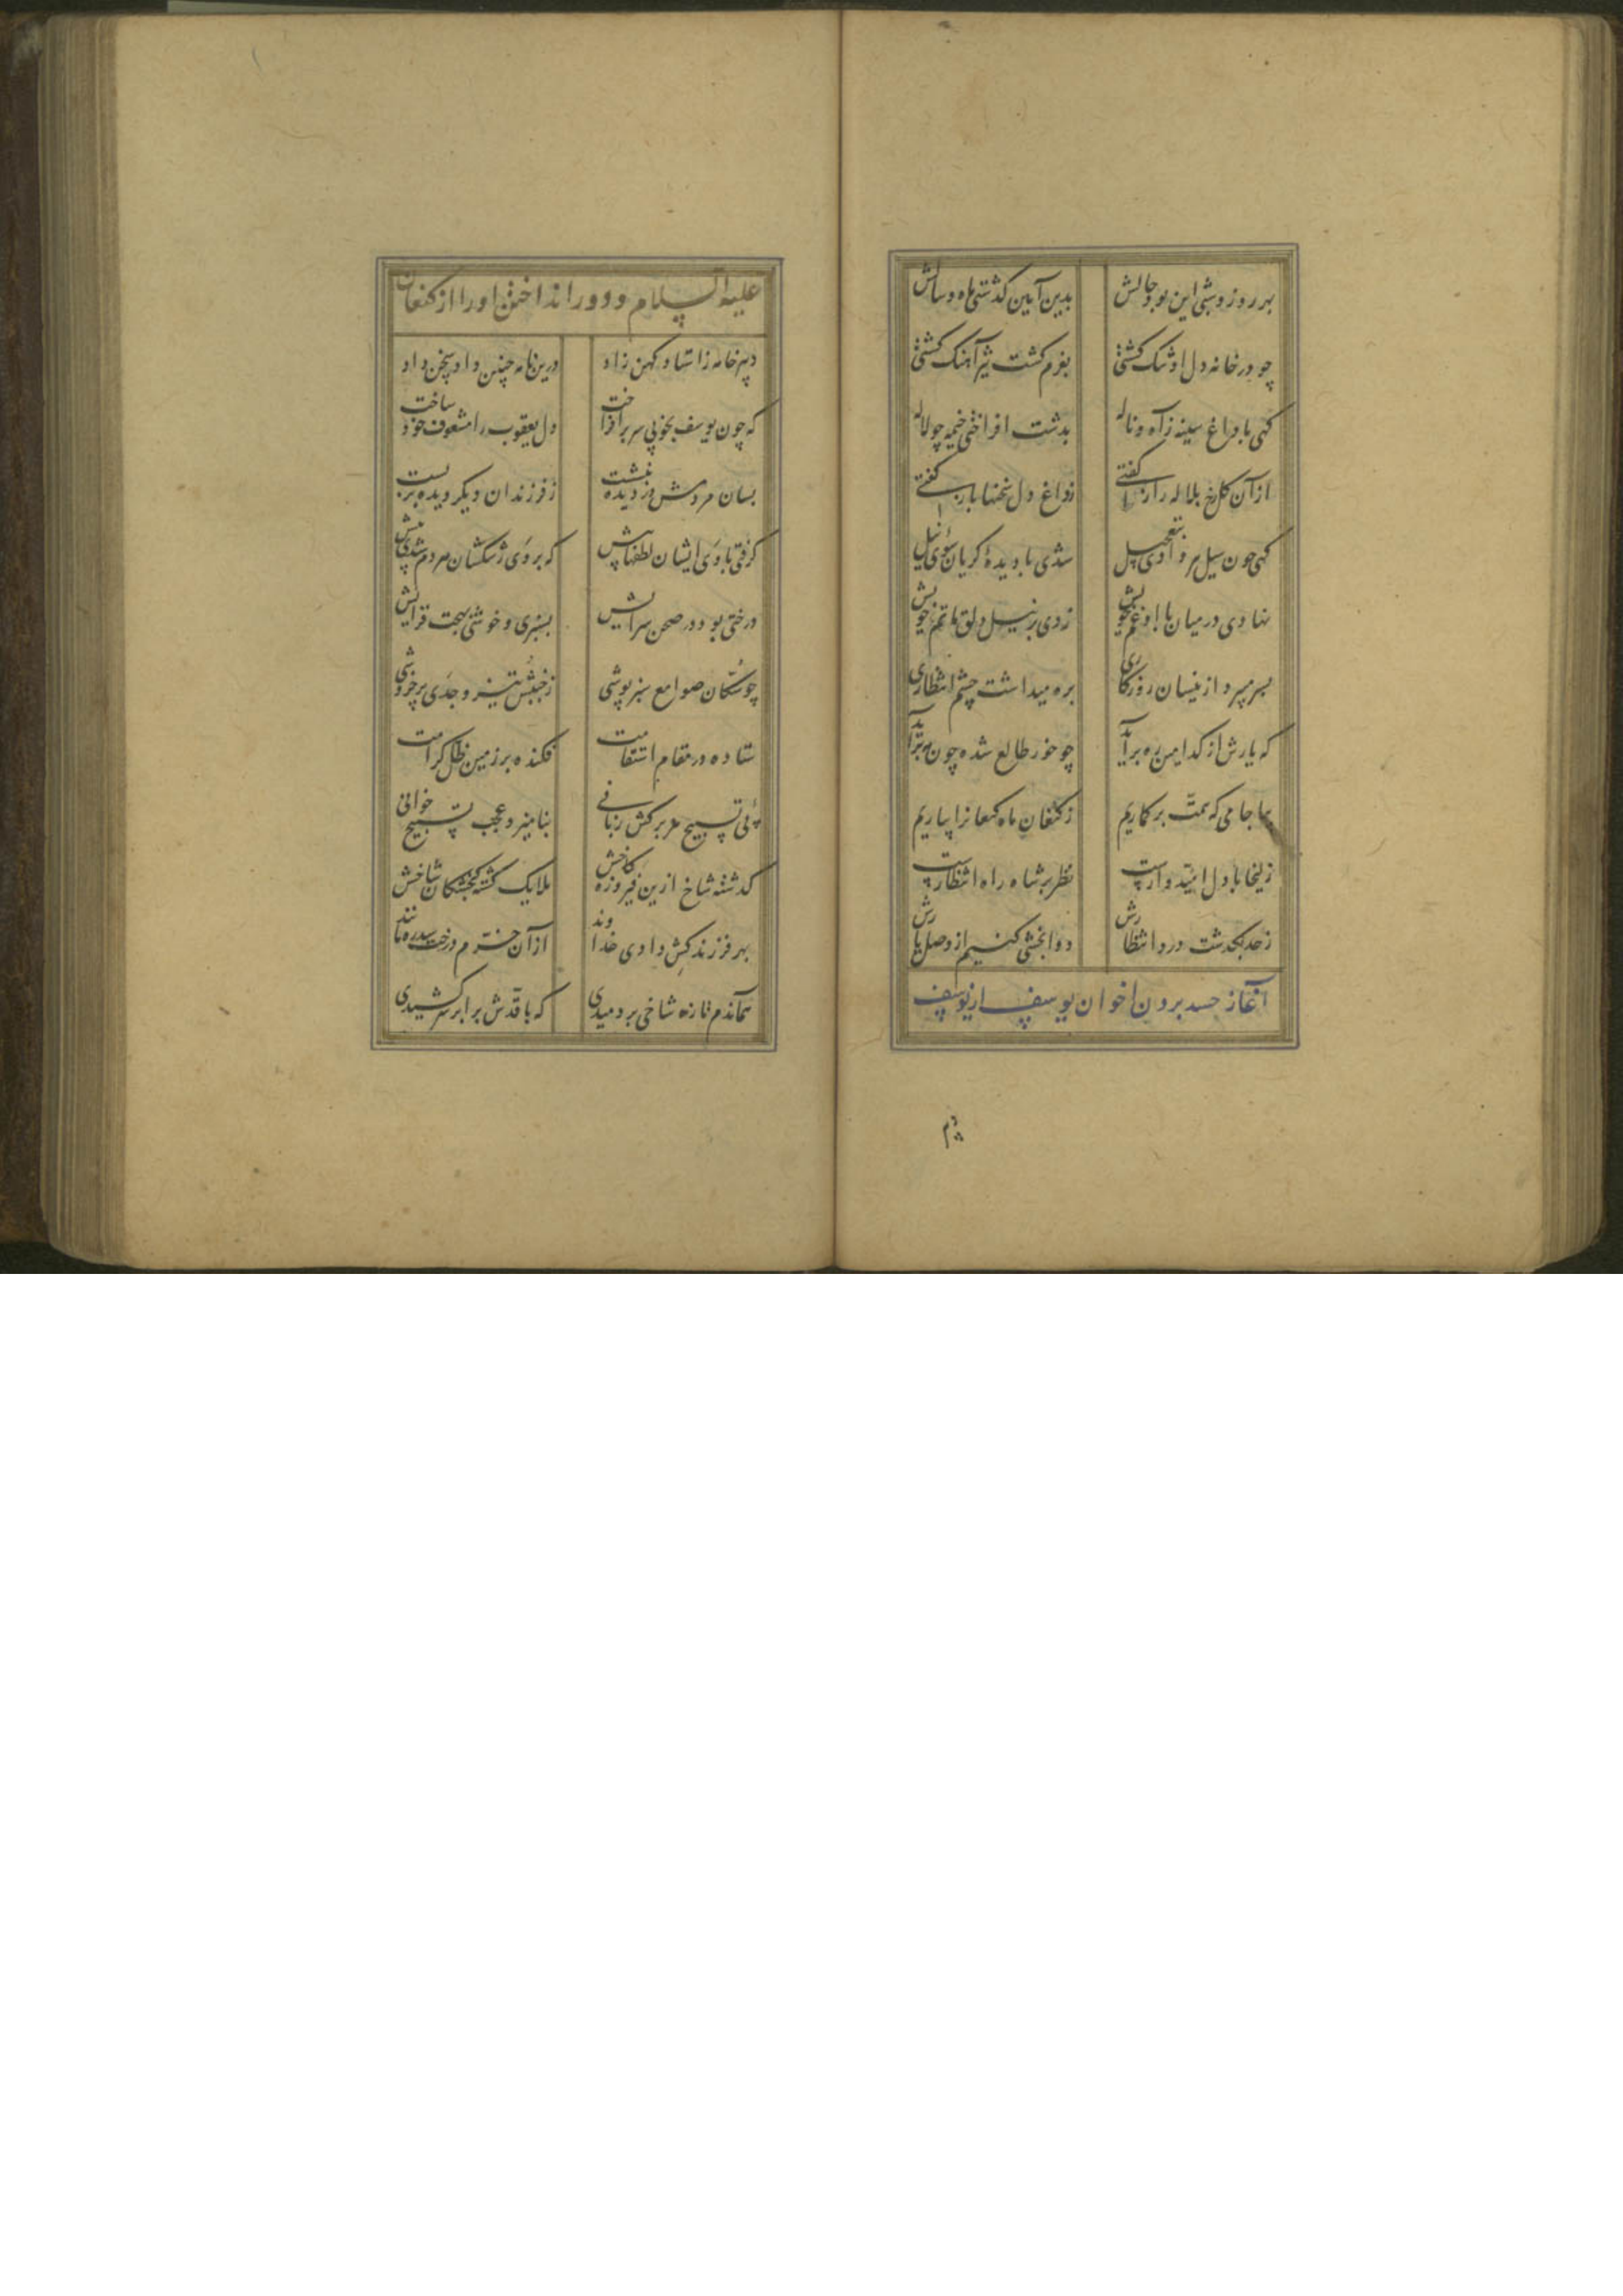 بهر روز و شبی این بود حالش بدین آیین گذشتی ماه و سالش
چو در خانه دل او تنگ گشتی بعزم گشت تیز آهنگ گشتی
گهی با داغ سینه ز آه و ناله بدشت افراختی خیمه چو لاله
از آن گلرخ بلاله راز گفتی ز داغ دل سخنها باز گفتی
گهی چون سیل در وادی بتعجیل شدی با دیده گریان سوی نیل
نهادی در میان با او غم خویش زدی بر نیل دلق ماتم خویش
بسر میبرد از ینسان روزگاری بره میداشت چشم انتظاری
که یارش از کدامین ره برآید چو خور طالع شده چون مه برآید
بیا جامی که همت بر گماریم ز کنعان ماه کنعانرا بیاریم
زلیخا با دل امیدوارست نظر بر شاه راه انتظارست
ز حد بگذشت درد انتظارش دوابخشی کنیم از وصل یارش
آغاز حسد بردن اخوان یوسف از یوسف
دبیر
علیه السلام و دور انداختن او را از کنعان
دبیر خامه ز استاد کهن زاد درین نامه چنین داد سخن داد
که چون یوسف بخوبی سر برافراخت دل یعقوب را مشعوف خود ساخت
بسان مردمش در دیده بنشست ز فرزندان دیگر دیده بربست
گرفتی با وی ایشان لطفها پیش که بر وی رشکشان هر دم شدی بیش
درختی بود در صحن سرایش بسبزی و خوشی بهجت فزایش
چو سکان صوامع سبزپوشی ز جنبش تیز وجدی پر خروشی
ستاده در مقام استقامت فکنده بر زمین ظل کرامت
پی تسبیح هر برگش زبانی بنامیزد عجب تسبیح خوانی
گذشته شاخ ازین فیروزه کاخش ملایک گشته گنجشکان شاخش
بهر فرزند کش دادی خداوند از آن خرم درخت سدره مانند
همآندم تازه شاخی بردمیدی که با قدش برابر سر کشیدی